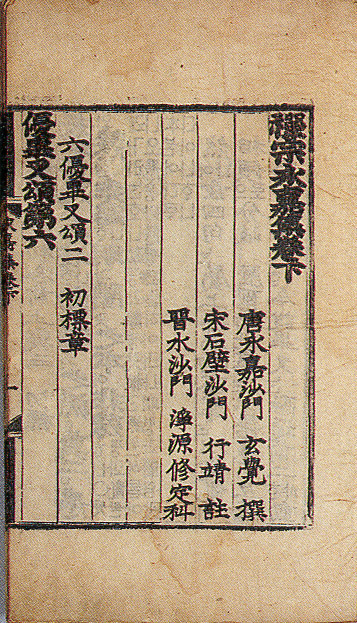 禪宗永嘉集卷下
唐永嘉沙門 玄覺 撰
宋石壁沙門 行靖 註
晉水沙門 淨源修定科
六優畢叉頌二 初標章
優畢叉頌第六